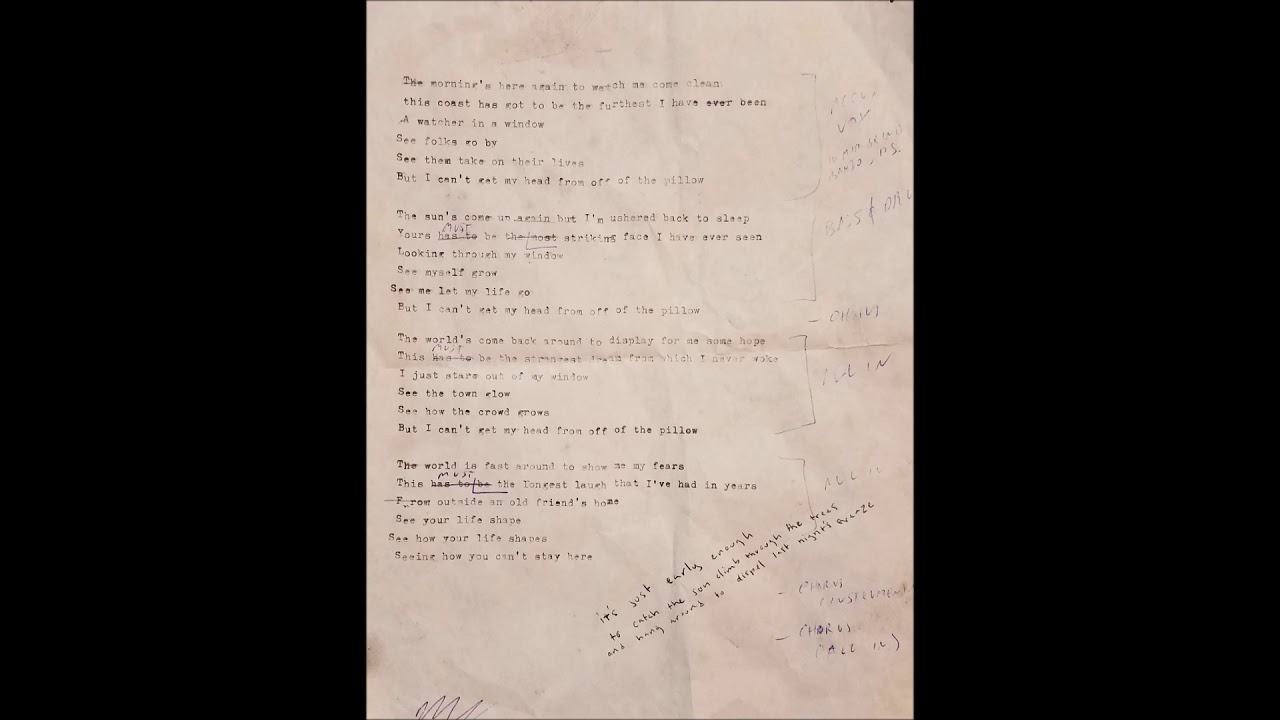 The morning's here again to watch me come clean
this coast has got to be the furthest I have ever been
A watcher in a window
See folks go by
See them take on their lives
But I can't get my head from off of the pillow
BASS & DRU
The sun's come up again but I'm ushered back to sleep
MUST
Yours has to be the most striking face I have ever seen
Looking through my window
See myself grow
See me let my life go
But I can't get my head from off of the pillow
– CHORUS
The world's come back around to display for me some hope
MUST
This has to be the strangest dream from which I never woke
I just stare out of my window
ALL IN
See the town glow
See how the crowd grows
But I can't get my head from off of the pillow
The world is fast around to show me my fears
MUST
This has to be the longest laugh that I've had in years
ALL IN
From outside an old friend's home
See your life shape
See how your life shapes
Seeing how you can't stay here
it's just early enough
to catch the sun climb through the trees
and hang around to dispel last night's freeze
– CHORUS
– CHORUS
(ALL IN)